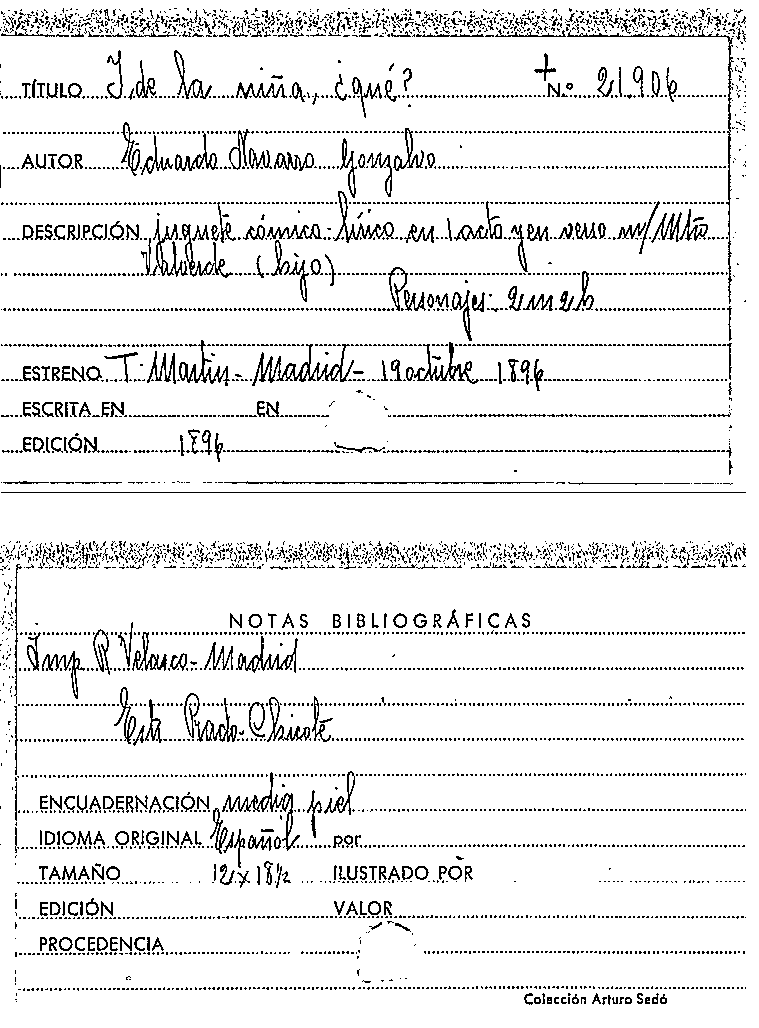 TÍTULO Y de la niña, ¿qué? Nº 21.906
AUTOR Eduardo Navarro Gonzalvo
DESCRIPCIÓN juguete cómico-lírico en 1 acto y en verso m/ Mtro
Valverde (hijo)
Personajes: 2m 2h
ESTRENO T. Martín - Madrid - 19 octubre 1896
ESCRITA EN EN
EDICIÓN 1896
NOTAS BIBLIOGRÁFICAS
Imp R Velasco - Madrid
Estr Prado-Chicote
ENCUADERNACIÓN media piel
IDIOMA ORIGINAL Español por
TAMAÑO 12 x 18 1/2 ILUSTRADO POR
EDICIÓN VALOR
PROCEDENCIA
Colección Arturo Sedó